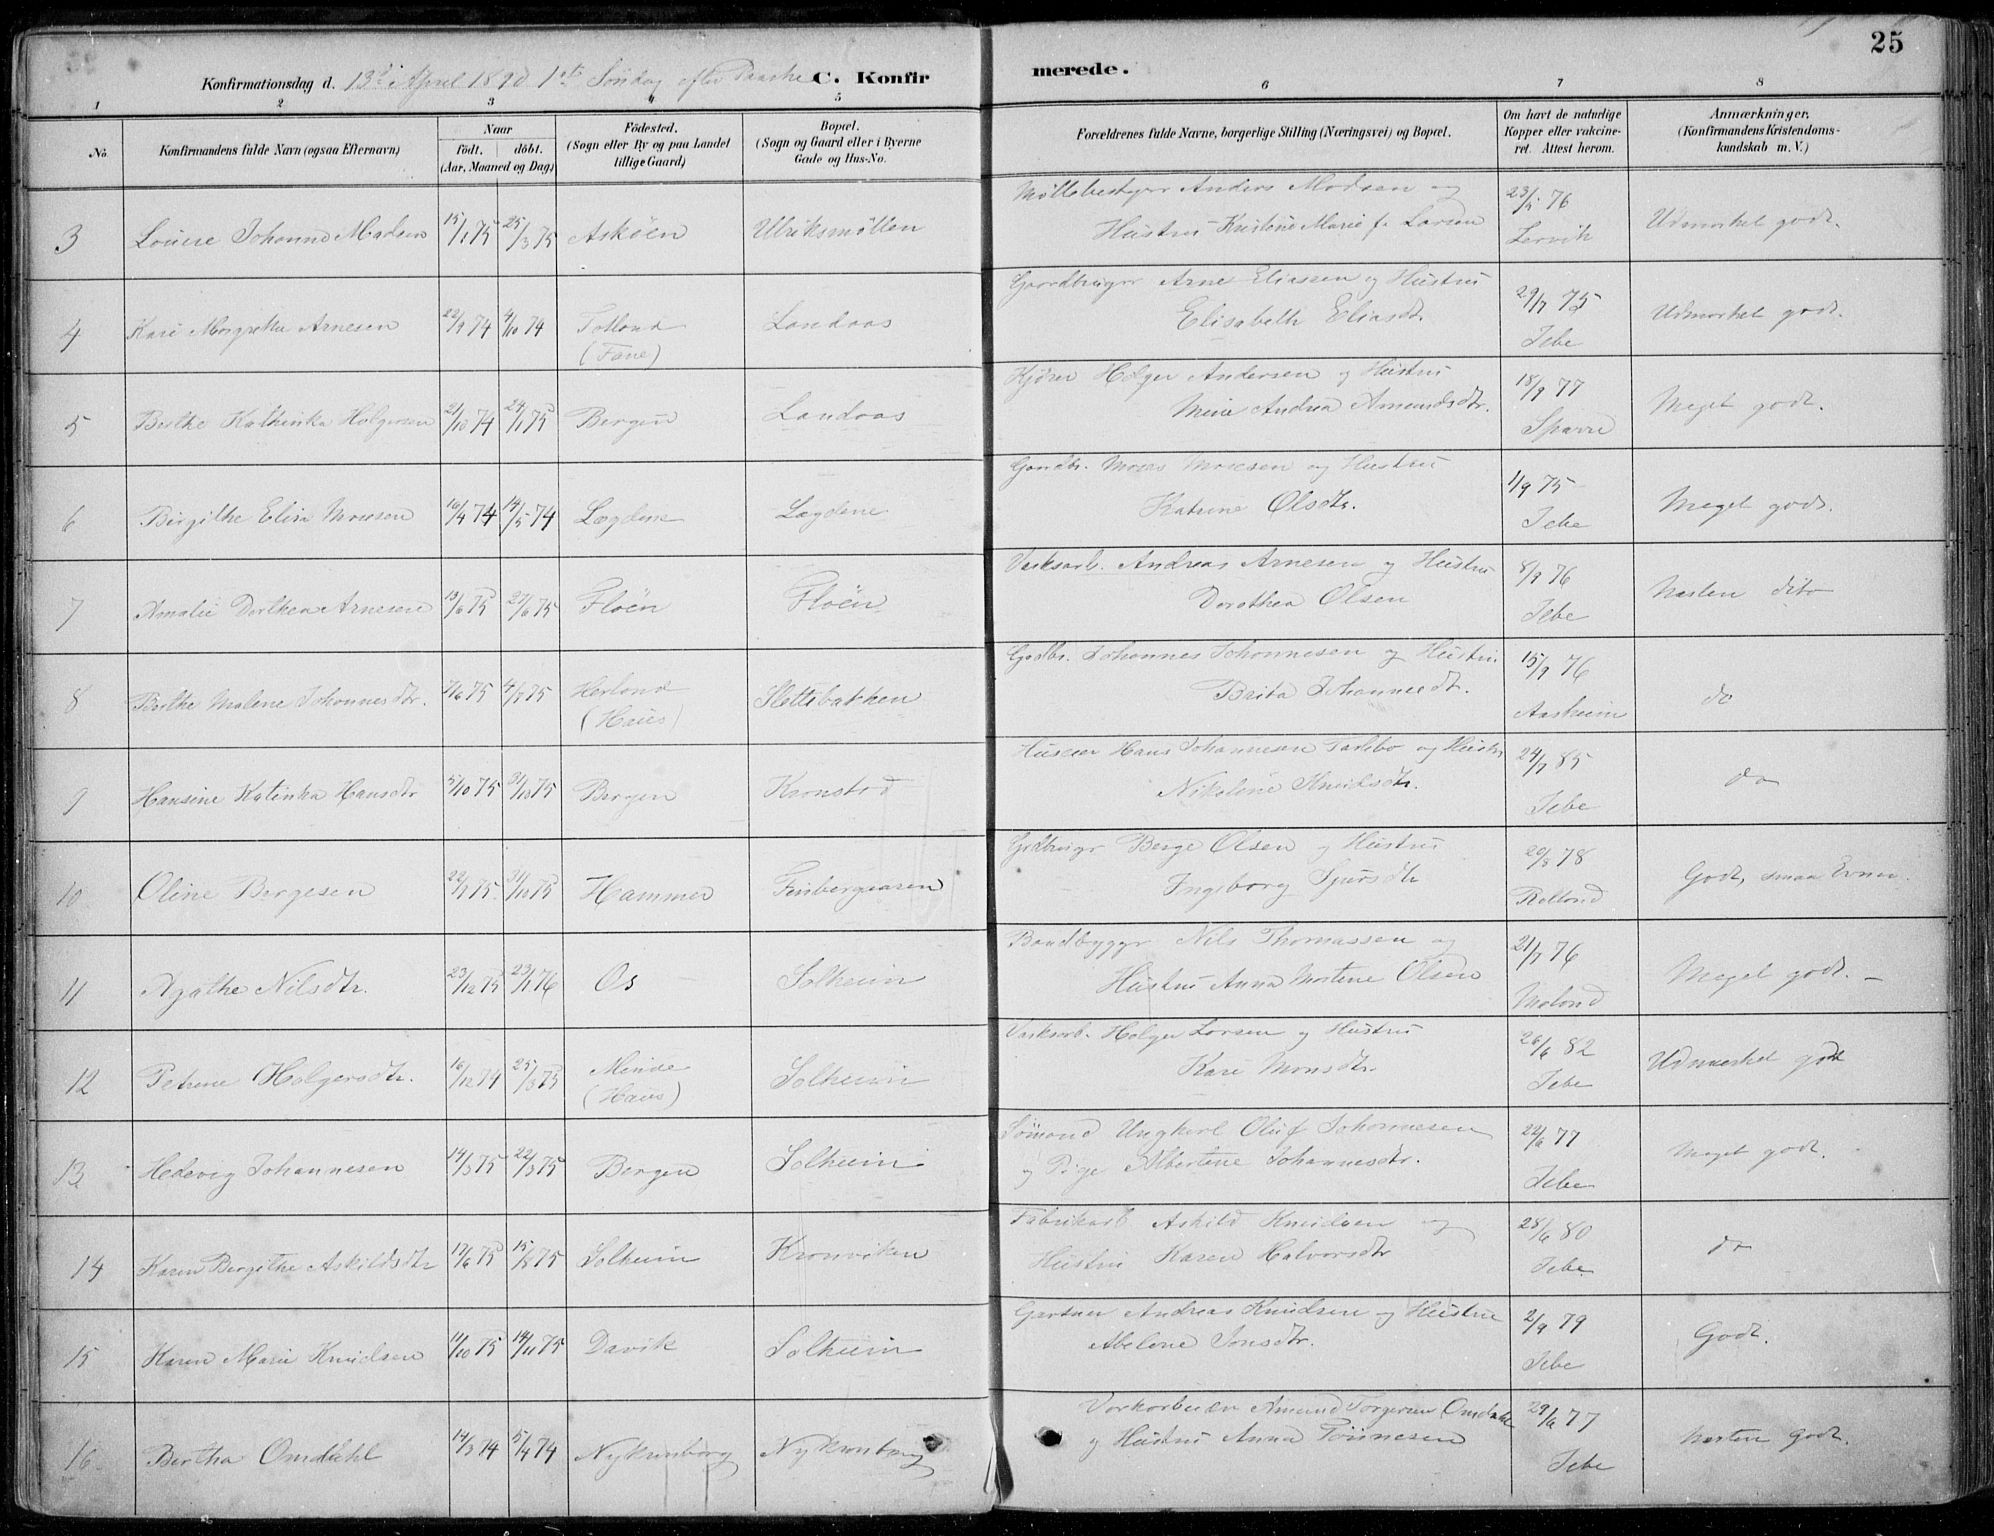 25
Konfirmationsdag d. 13de April 1890 1ste Søndag efter Paaske C. Konfirmerede.
1 2 3 4 5 6 7 8
No. Konfirmandens fulde Navn (ogsaa Efternavn) Naar födt. döbt. (Aar, Maaned og Dag) Födested. (Sogn eller By og paa Landet tillige Gaard) Bopæl. (Sogn og Gaard eller i Byerne Gade og Hus-No. Forældrenes fulde Navne, borgerlige Stilling (Næringsvei) og Bopæl. Om havt de naturlige Kopper eller vakcineret. Attest herom. Anmærkninger. (Konfirmandens Kristendomskundskab m. V.)
3 Louise Johanne Madsen 15/1 75 25/3 75 Askøen Ulriksmøllen Møllebestyrer Anders Madsen og
Hustru Kristine Marie f. Larsen 23/5 76 Lervik Udmærket godt.
4 Kari Margretha Arnesen 22/9 74 4/10 74 Totland (Fane) Landaas Gaardbruger Arne Eliassen og Hustru
Elisabeth Eliasdt. 29/7 75 Jebe Udmærket godt.
5 Berthe Kathinka Holgersen 21/10 74 24/1 75 Bergen Landaas Kjører Holger Andersen og Hustru
Andrea Amundsdtr. 18/9 77 Sparre Meget godt.
6 Birgithe Elisa Monsen 16/4 74 14/5 74 Lægdene Lægdene Gaardbr. Mons Monsen og Hustru
Katrine Olsdtr. 1/9 75 Jebe Meget godt.
7 Amalie Dorthea Arnesen 13/6 75 27/6 75 Fløen Fløen Værksarb. Andreas Arnesen og Hustru
Dorothea Olsen 8/9 76 Jebe Næsten dito
8 Berthe Malene Johannesdtr. 7/6 75 4/7 75 Herland (Haus) Slettebakken Gaardbr. Johannes Johannesen og Hustru
Brita Johannesdtr. 15/9 76 Aasheim do
9 Hansine Katinka Hansdtr 5/10 75 31/10 75 Bergen Kronstad Husmr Hans Johannesen Tarlebo og Hustru
Nikoline Knudsdtr. 24/7 85 Jebe do
10 Oline Bergesen 22/9 75 31/10 75 Hammer Finbergaasen Grdbrugr Berge Olsen og Hustru
Ingeborg Sjursdtr 20/8 78 Godt, smaa Evner.
11 Agathe Nilsdtr. 23/12 75 23/1 76 Os Solheim Baadbyggr Nils Thomassen og
Hustru Anna Martine Olsen 21/7 76 Meget godt.
12 Petrine Holgersdtr. 16/12 74 25/3 75 Minde (Haus) Solheim Værksarb. Holger Larsen og Hustru
Kari Monsdtr. 26/6 82 Jebe Udmærket godt
13 Hedevig Johannesen 14/3 75 22/3 75 Bergen Solheim Sømand Ungkarl Oluf Johannesen
og Pige Albertine Johannesdtr. 22/6 77 Jebe Meget godt.
14 Karen Bergithe Askildsdtr 17/6 75 15/8 75 Solheim Kronviken Fabrikarb. Askild Knudsen og
Hustru Karen Halvorsdtr 28/6 80 Jebe do
15 Karen Marie Knudsen 11/10 75 14/11 75 Davik Solheim Gartner Andreas Knudsen og Hustru
Abelone Jonsdtr. 2/9 79 Jebe Godt.
16 Bertha Omdahl 14/3 74 5/4 74 Nykronborg Nykronborg Amund Torgersen Omdahl
og Hustru Anna Tønnesen 29/6 77 Jebe Næsten godt.